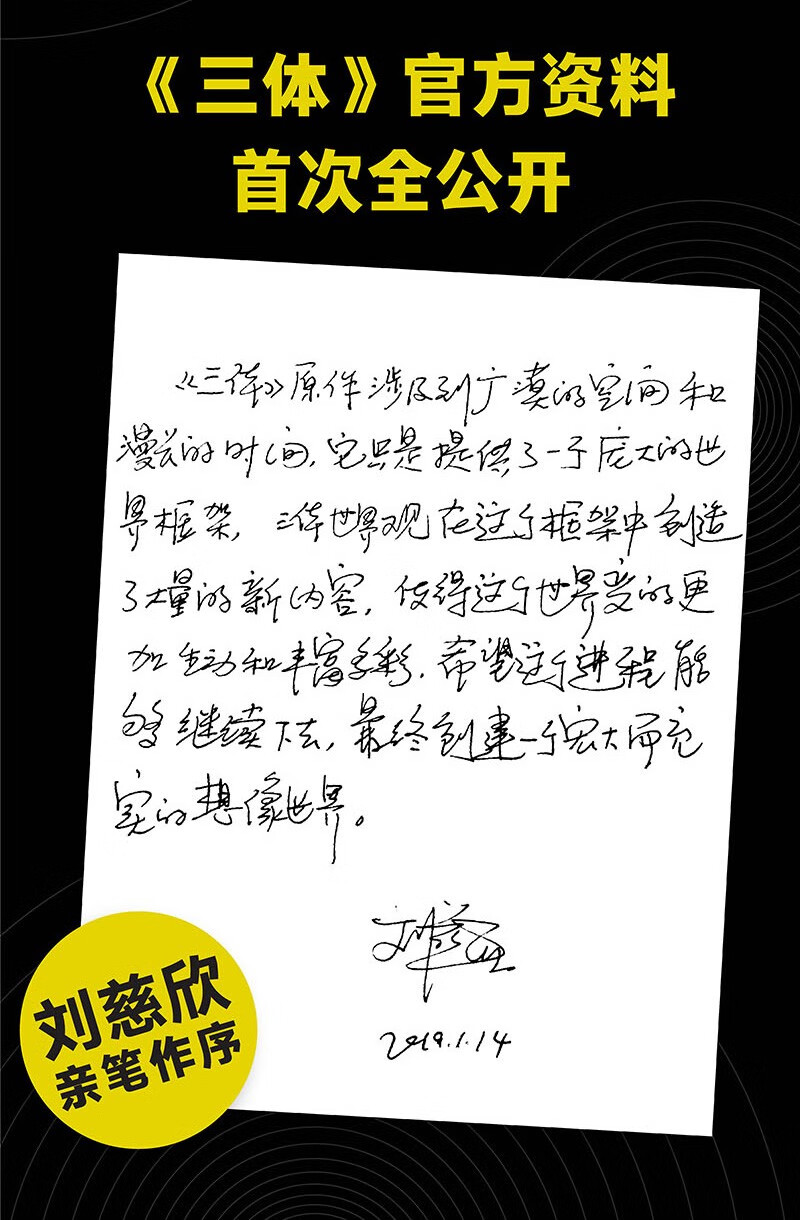 《三体》官方资料
首次全公开
《三体》原作涉及到广漠的空间和
漫长的时间，它只是提供了一个庞大的世
界框架，三体世界观在这个框架中创造
了大量的新内容，使得这个世界变的更
加生动和丰富多彩，希望这个进程能
够继续下去，最终创建一个宏大而充
实的想像世界。
刘慈欣
2019.1.14
刘慈欣
亲笔作序